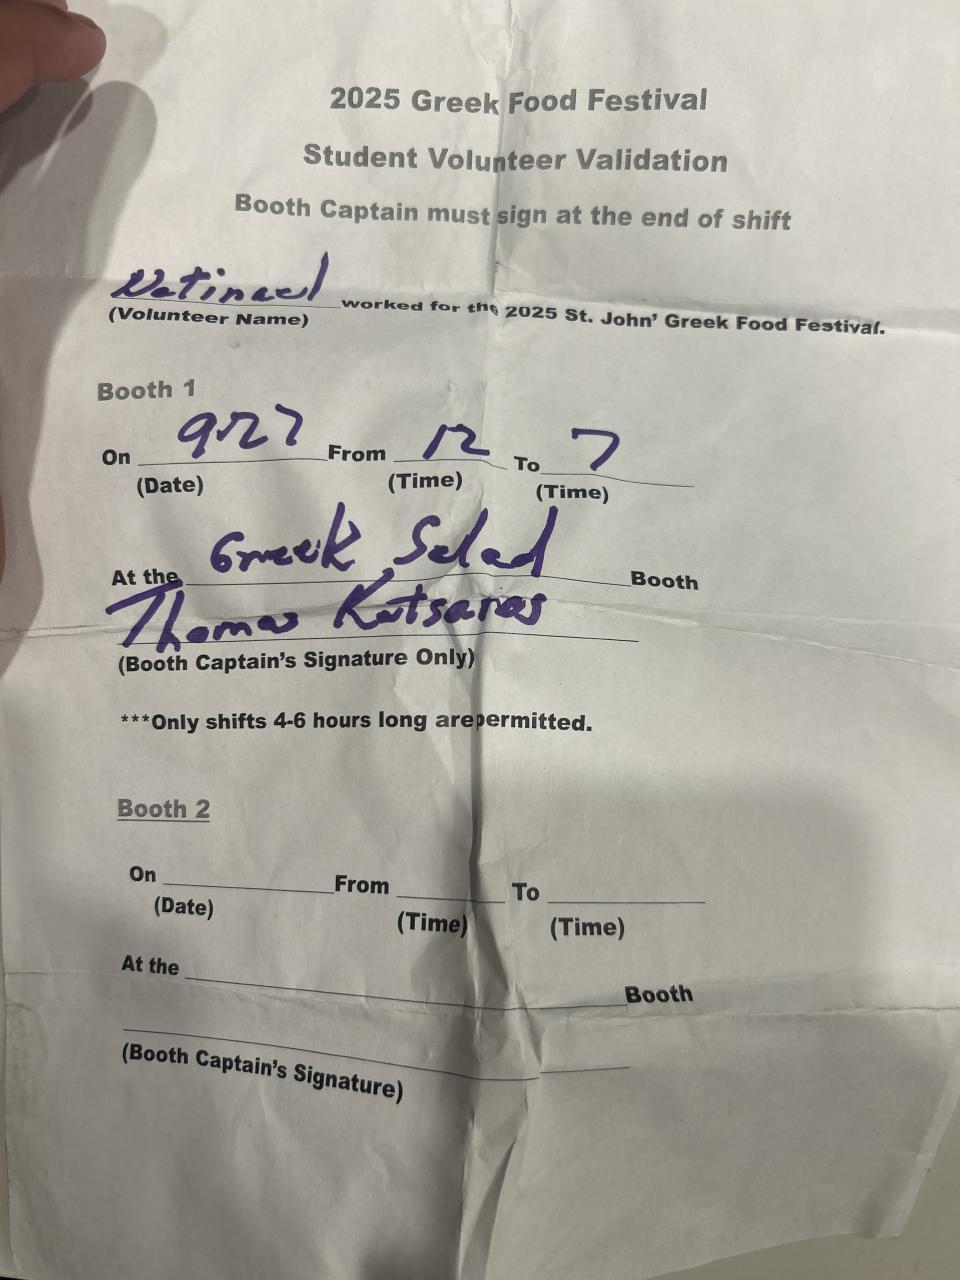 2025 Greek Food Festival
Student Volunteer Validation
Booth Captain must sign at the end of shift
Natinael worked for the 2025 St. John' Greek Food Festival.
(Volunteer Name)
Booth 1
On 9/27 From 12 To 7
(Date) (Time) (Time)
At the Greek Salad Booth
Thomas Katsaras
(Booth Captain's Signature Only)
***Only shifts 4-6 hours long are permitted.
Booth 2
On From To
(Date) (Time) (Time)
At the Booth
(Booth Captain's Signature)